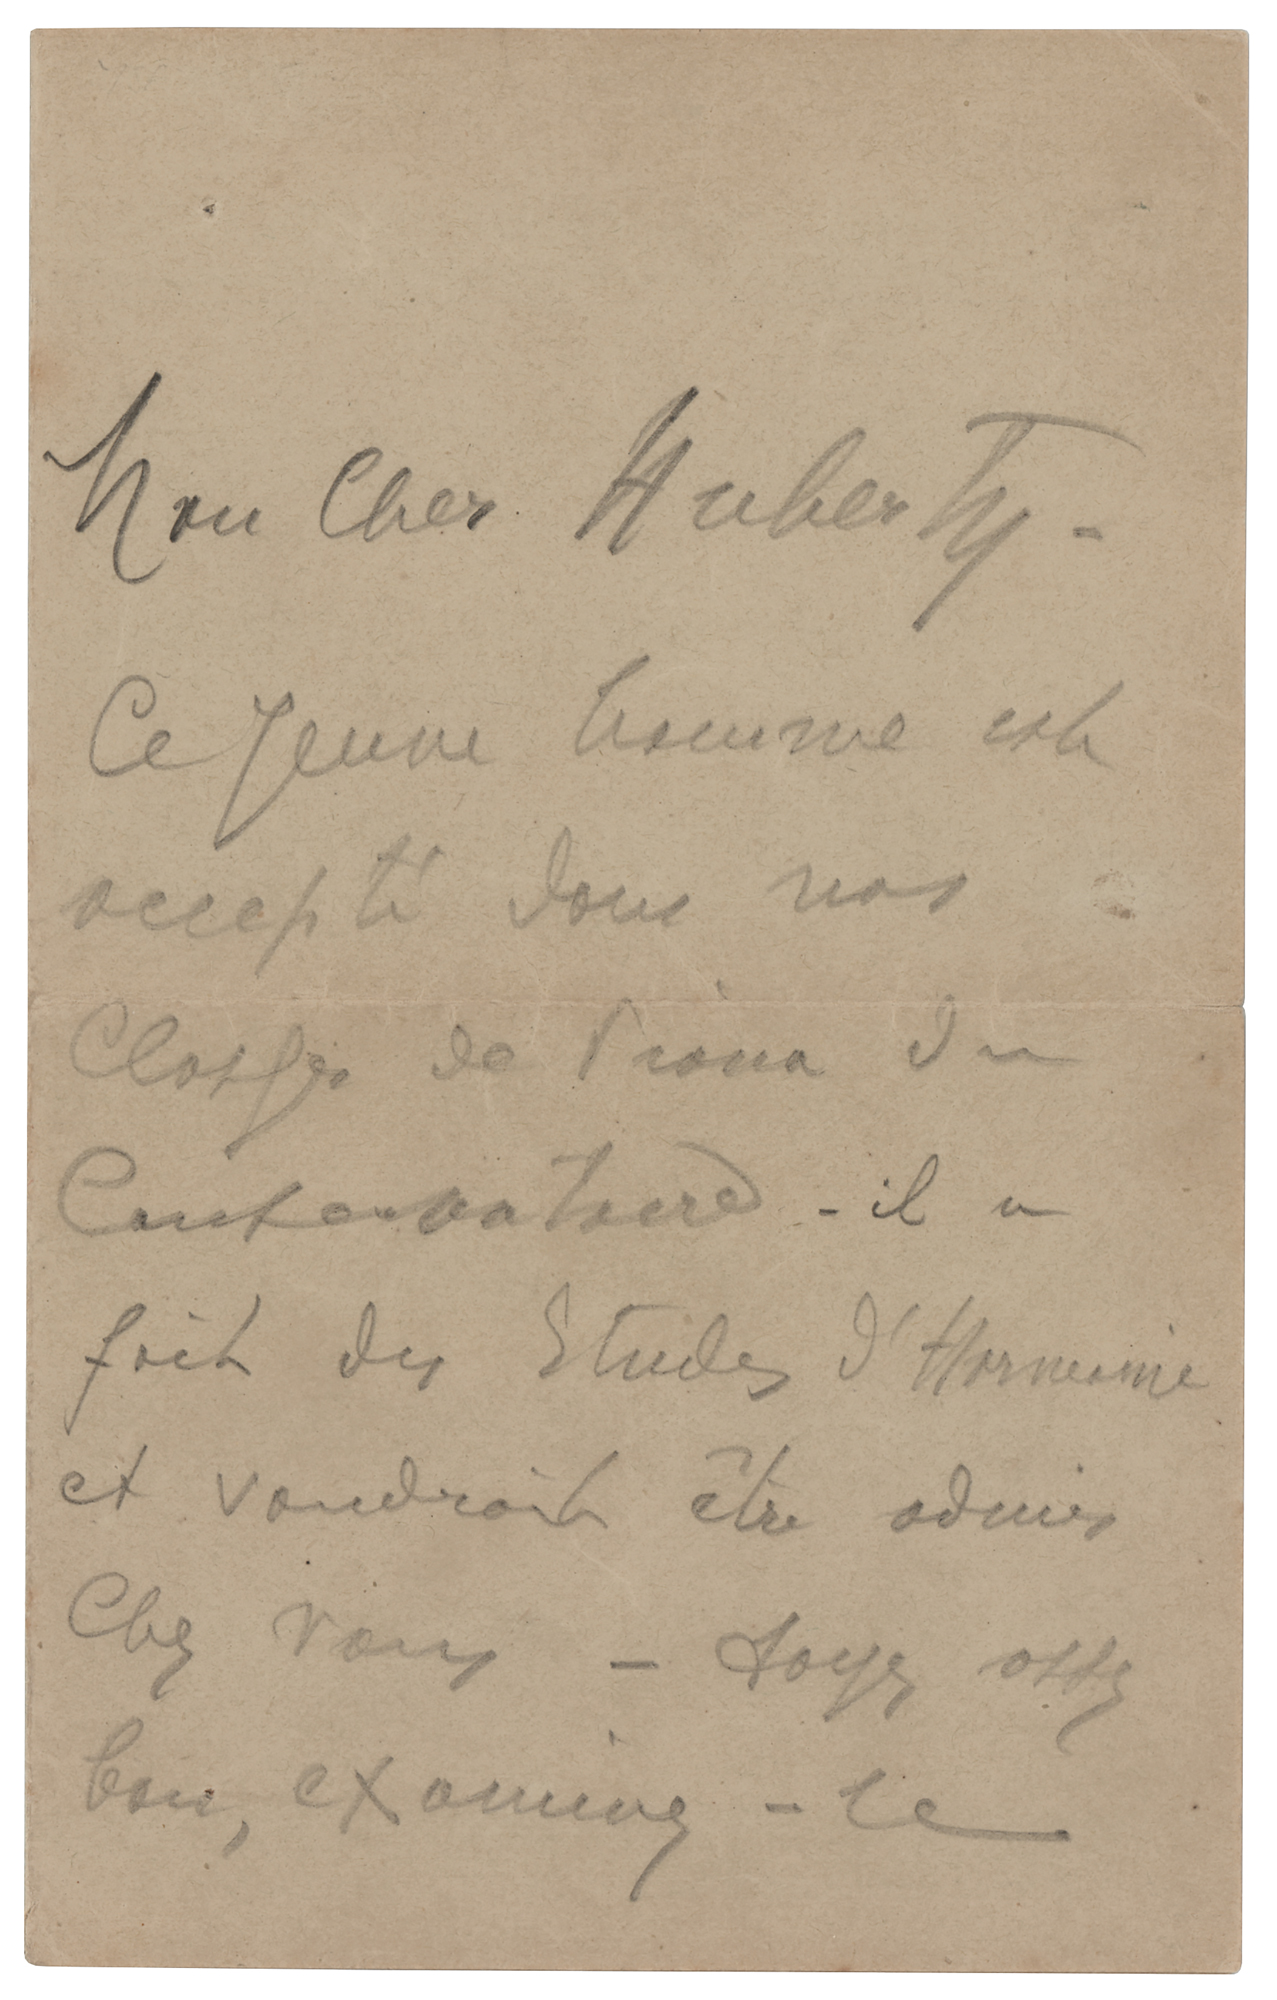 Mon Cher Huberty -
Ce Jeune homme est
accepté dans nos
Classes de Piano du
Conservatoire - il a
fait des Etudes d'Harmonie
et voudrait être admis
Chez vous - soyez assez
bon, examinez - le